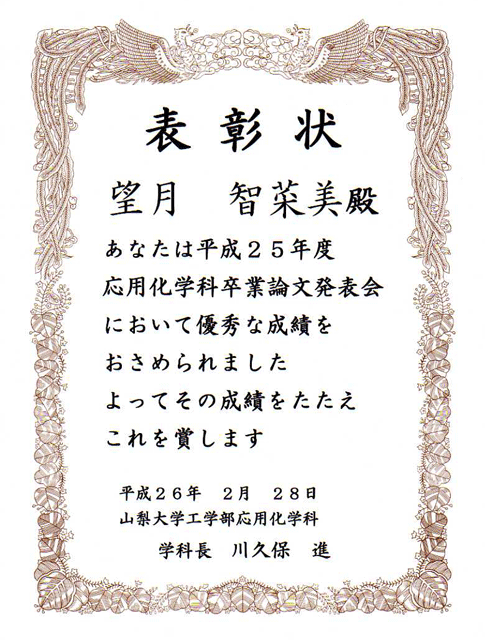 表彰状
望月　智菜美殿
あなたは平成２５年度
応用化学科卒業論文発表会
において優秀な成績を
おさめられました
よってその成績をたたえ
これを賞します
平成２６年　２月　２８日
山梨大学工学部応用化学科
学科長　川久保　進